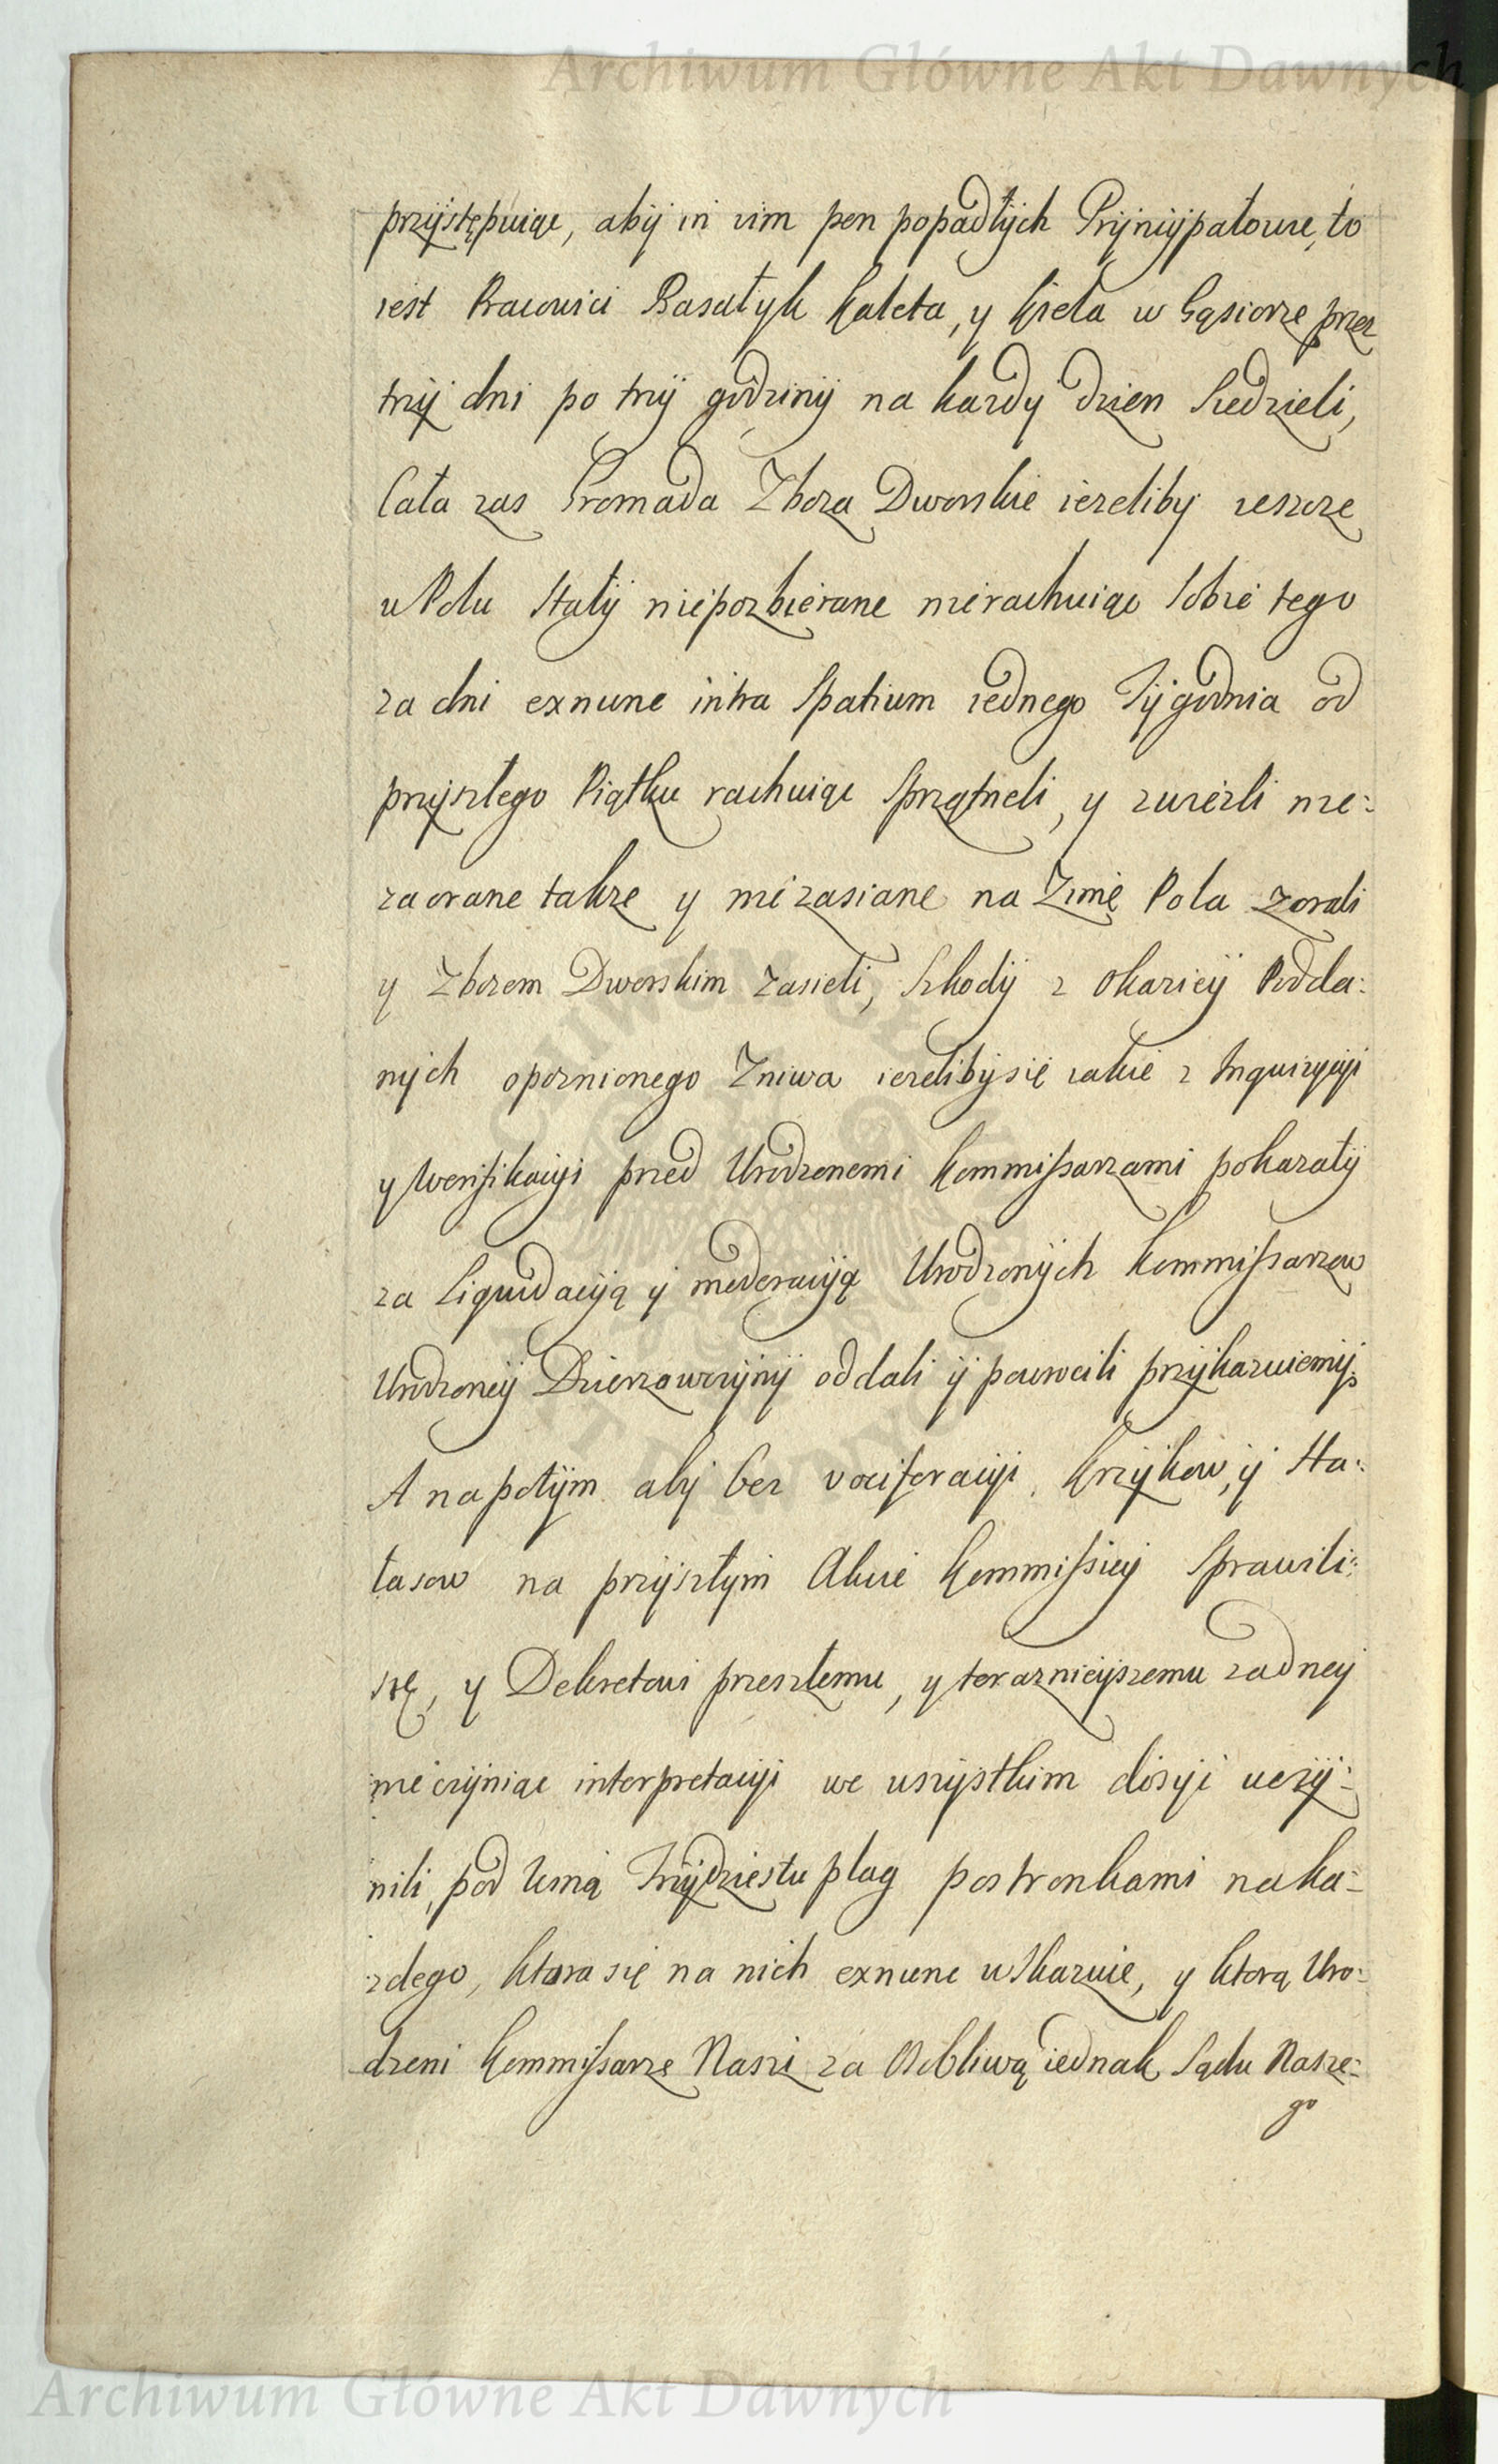 Archiwum Główne Akt Dawnych
przÿstępuiąc, abÿ in vim pœn popadłÿch Prÿnÿpałowie, to
iest Pracowici Basałyk Kaleta, y Kieła w Gąsiorze przez
trzÿ dni po trzÿ godzinÿ na kazdy dzien Siedzieli,
Cała zas Gromada Zboza Dworskie iezeliby ieszcze
w Polu Stałÿ niepozbierane nierachuiąc Sobie tego
za dni exnunc intra Spatium iednego Tÿgodnia od
przÿszłego Piątku rachuiąc Sprzątneli, y zwiezli nie:
zaorane takze y niezasiane na Zimę Pola Zorali
y Zbozem Dworskim Zasieli, Szkodÿ z Okazieÿ Podda:
nÿch opoznionego Zniwa iezelibÿsię iakie z Inquizycÿi
y Weryfikacÿi przed Urodzonemi Kommissarzami pokazałÿ
za Liquidacÿą y moderacÿą Urodzonÿch Kommissarzow
Urodzoneÿ Dzierzawczÿnÿ oddali ÿ powrocili przÿkazuiemÿ;
A napotÿm abÿ bez vociferacÿi, Krzÿkow, ÿ Ha:
łasow na przÿszłÿm Akcie Kommissieÿ Sprawili:
się, y Dekretowi przeszłemu, y teraznieÿszemu zadneÿ
nie czÿniąc interpretacÿi we wszÿstkim dosÿc uczÿ:
nili, pod Winą Trzÿdziestu plag postronkami naka:
zdego, ktora się na nich exnunc wSkazuie, y ktorą Uro:
dzeni Kommissarze Nasi za Osobliwą iednak Sądu Nasze:
go
Archiwum Główne Akt Dawnych